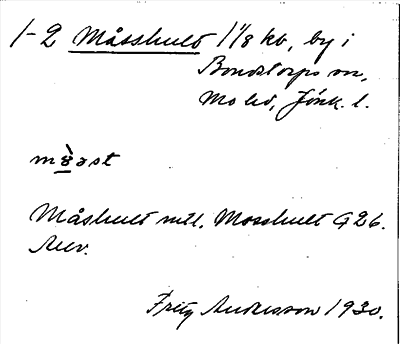 1-2 Måsshult 1 1/8 kb, by i
Bondstorps sn,
Mo hd, Jönk. l.
Måshult mtl. Mosshult G 26.
Fritz Andersson 1930.